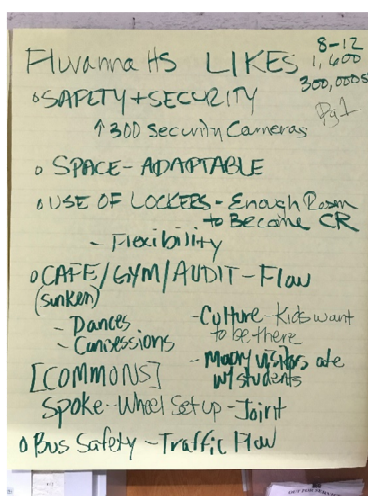 Fluvanna HS LIKES
8-12
1,600
300,000s
Pg 1
o SAFETY + SECURITY
↑ 300 Security Cameras
o SPACE - ADAPTABLE
o USE OF LOCKERS - Enough Room
to Become CR
- Flexibility
o CAFE/GYM/AUDIT - Flow
(sunken)
- Dances
- Concessions
- Culture - Kids want
to be there
- Many visitors ate
w/ students
[COMMONS]
Spoke - Wheel Set up - Joint
o Bus Safety - Traffic Flow